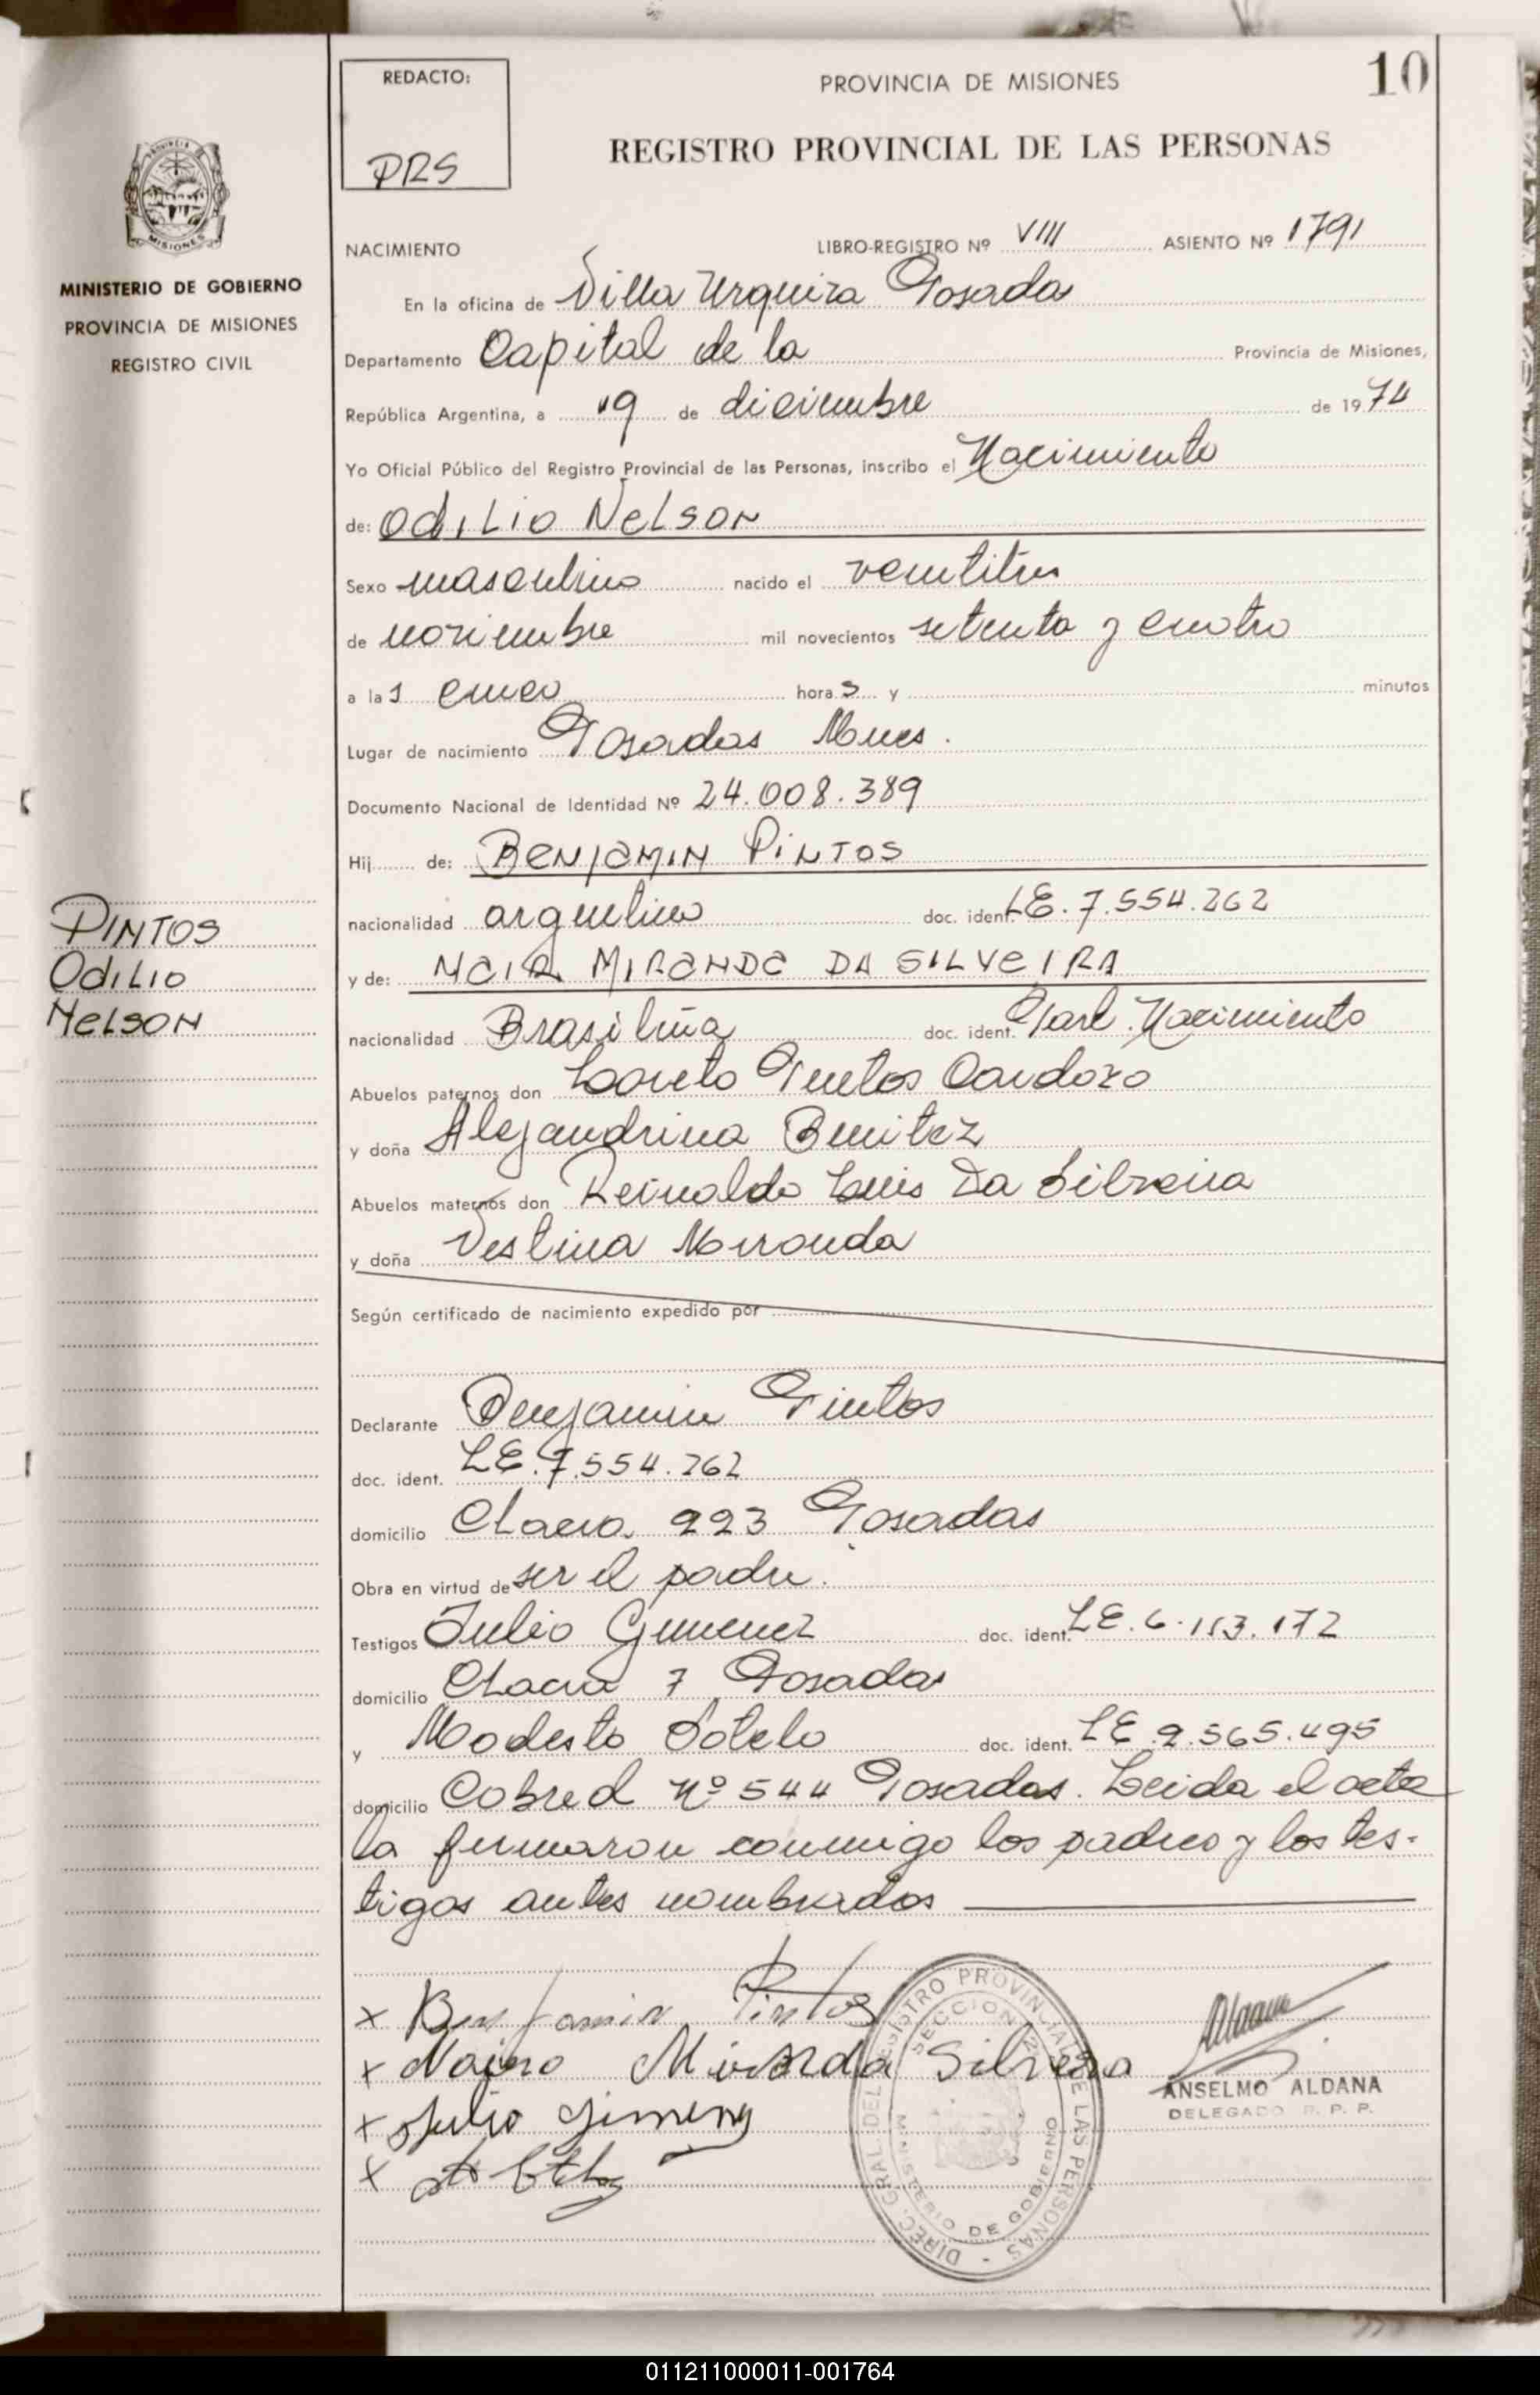 10
REDACTO:
PRS
PROVINCIA DE MISIONES
REGISTRO PROVINCIAL DE LAS PERSONAS
MISIONES
MINISTERIO DE GOBIERNO
PROVINCIA DE MISIONES
REGISTRO CIVIL
NACIMIENTO LIBRO-REGISTRO Nº VIII ASIENTO Nº 1791
En la oficina de Villa Urquiza Posadas
Departamento Capital de la Provincia de Misiones,
República Argentina, a 19 de diciembre de 1974
Yo Oficial Público del Registro Provincial de las Personas, inscribo el Nacimiento
de: Odilio Nelson
Sexo masculino nacido el veintitres
de noviembre mil novecientos setenta y cuatro
a las cinco horas y minutos
Lugar de nacimiento Posadas Mnes.
Documento Nacional de Identidad Nº 24.008.389
Hij de: BENJAMIN PINTOS
nacionalidad argentino doc. ident. LE. 7.554.262
y de: NAIR MIRANDA DA SILVEIRA
nacionalidad Brasilña doc. ident. Part. Nacimiento
Abuelos paternos don Loreto Pintos Cardozo
y doña Alejandrina Benitez
Abuelos maternos don Reinaldo Luis Da Silveira
y doña Vestina Miranda
Según certificado de nacimiento expedido por
Declarante Benjamin Pintos
doc. ident. LE. 7.554.262
domicilio Chacra 223 Posadas
Obra en virtud de ser el padre.
Testigos Julio Gimenez doc. ident. LE. 6.153.172
domicilio Chacra 7 Posadas
y Modesto Sotelo doc. ident. LE. 2.565.495
domicilio Cobred nº 544 Posadas. Leida el acta
la firmaron conmigo los padres y los tes-
tigos antes nombrados
PINTOS
Odilio
Nelson
x Benjamin Pintos
x Naira Miranda Silveira
x Julio Gimenez
x
DIREC. GRAL. DEL REGISTRO PROVINCIAL DE LAS PERSONAS -
SECCION 2
MINISTERIO DE GOBIERNO
ANSELMO ALDANA
DELEGADO R. P. P.
011211000011-001764